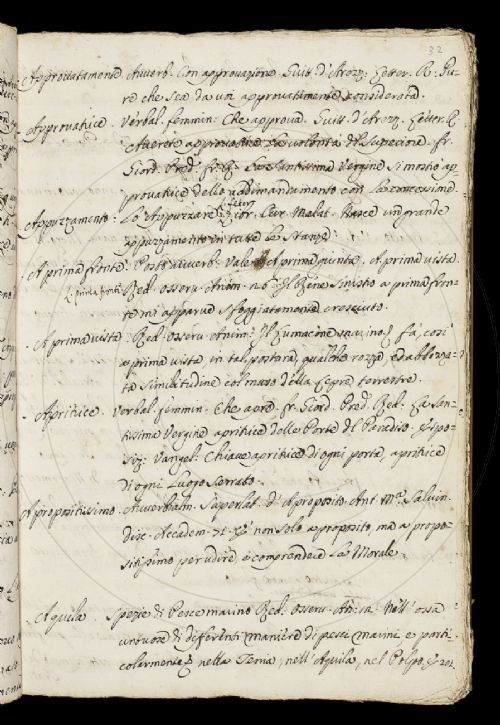 32
Approvatamente Avverb. Con approvazione. Guitt. d'Arezz. Letter. R. Pu-
re che sea da voi approvatamente considerata.
Approvatrice. Verbal. femmin: Che approva. Guitt. d'Arezz. Letter. R.
Avere approvatrice la volontà del Superiore. fr.
Giord. Pred. La Santissima Vergine si mostrò ap-
provatrice dello addimandamento con la concessione.
Appuzzamento. Lo Appuzzare. Libr. Cur. Malat. Nasce un grande
appuzzamento in tutte le Stanze
A prima fronte. Posto avverb. Vale A prima giunta, A prima vista.
Red. Osserv. Anim. 26. Il Rene sinistro a prima fron-
te mi apparve sfoggiatamente cresciuto.
A prima vista. Red. Osserv. Anim. Il Lumacone marino fa, così
a prima vista in tal postura, qualche rozza, ed abbozza-
ta similitudine col muso della Lepre terrestre.
Apritrice. Verbal. femmin. Che apre. fr. Giord. Pred. Red. La San-
tissima Vergine apritrice delle Porte del Paradiso. Espo-
siz. Vangel. Chiave apritrice di ogni porta, apritrice
di ogni Luogo serrato.
A propositissimo. Avverbialm. Superlat. d'A proposito. Ant. Mª. Salvin.
disc. Accadem. non solo a proposito, ma a propo-
sitissimo per udire, e comprendere La Morale.
Aquila. Spezie di Pesce marino. Red. Osserv. An. Nell' ossa
di differenti maniere di pesci marini e parti-
colarmente nella Tenia, nell'Aquila, nel Polpo,